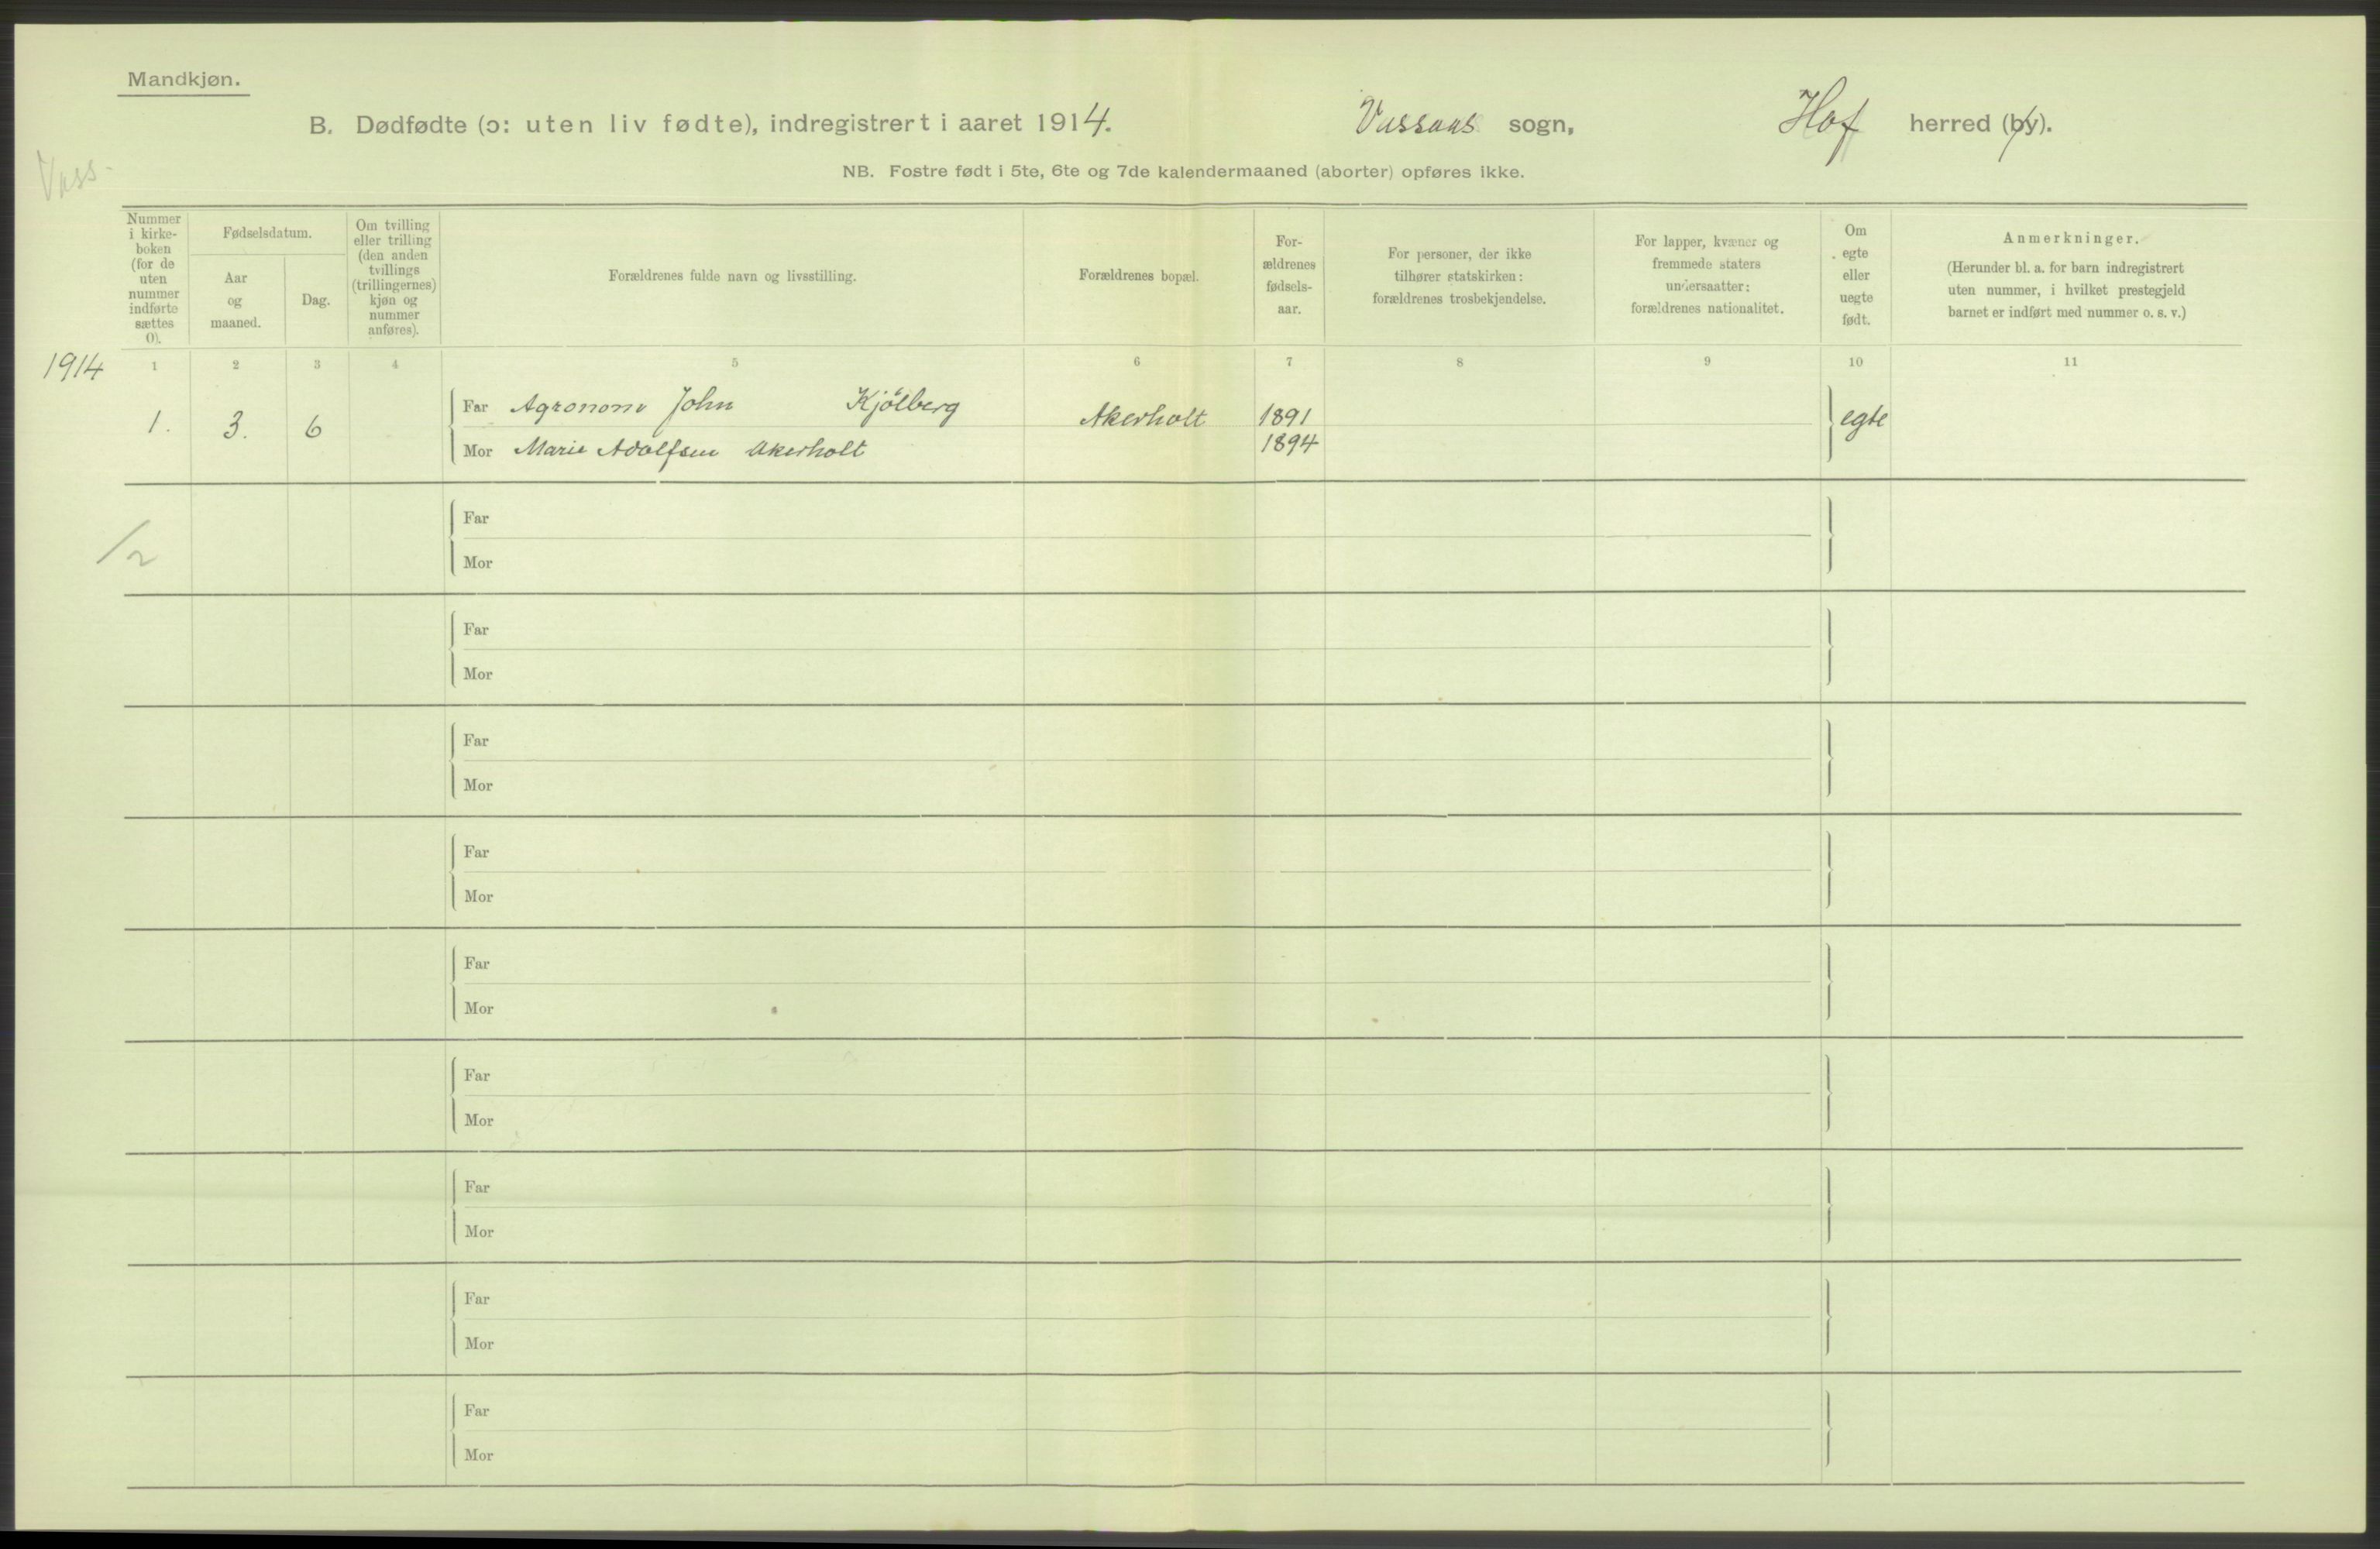 Mandkjøn.
B. Dødfødte (ɔ: uten liv fødte), indregistrert i aaret 1914. Vassaas sogn, Hof herred (by).
Vass-
NB. Fostre født i 5te, 6te og 7de kalendermaaned (aborter) opføres ikke.
Nummer
i kirke-
boken
(for de
uten
nummer
indførte
sættes
0).
Fødselsdatum.
Aar
og
maaned.
Dag.
Om tvilling
eller trilling
(den anden
tvillings
(trillingernes)
kjøn og
nummer
anføres).
Forældrenes fulde navn og livsstilling.
Forældrenes bopæl.
For-
ældrenes
fødsels-
aar.
For personer, der ikke
tilhører statskirken:
forældrenes trosbekjendelse.
For lapper, kvæner og
fremmede staters
undersaatter:
forældrenes nationalitet.
Om
egte
eller
uegte
født.
Anmerkninger.
(Herunder bl. a. for barn indregistrert
uten nummer, i hvilket prestegjeld
barnet er indført med nummer o. s. v.)
1914 1 2 3 4 5 6 7 8 9 10 11
1. 3. 6 Far Agronom John Kjölberg Akerholt 1891 egte
Mor Marie Adolfsen Akerholt 1894
Far
/2
Mor
Far
Mor
Far
Mor
Far
Mor
Far
Mor
Far
Mor
Far
Mor
Far
Mor
Far
Mor